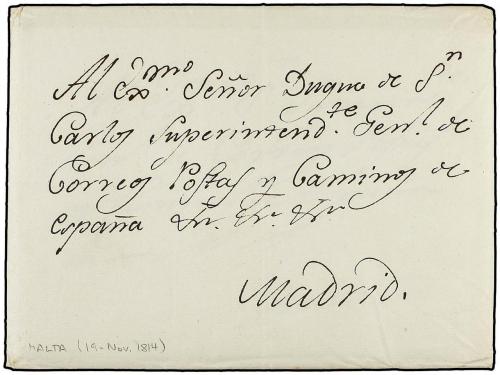 Al Exmo. Señor Duque de Sn.
Carlos Superintendte. Genrl. de
Correos Postas y Caminos de
España &r. &r. &r
Madrid.
MALTA (19-Nov. 1814)